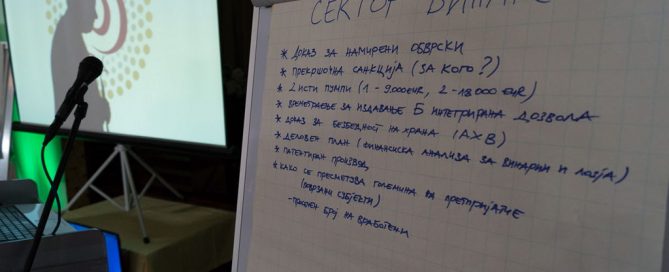 СЕКТОР ВИНАРС
* ДОКАЗ ЗА НАМИРЕНИ ОБВРСКИ
* ПРЕКРШОЧНА САНКЦИЈА (ЗА КОГО?)
* 2 ИСТИ ПУМПИ (1 - 9000 EUR, 2 - 18 000 EUR)
* ВРЕМЕТРАЕЊЕ ЗА ИЗДАВАЊЕ Б ИНТЕГРИРАНА ДОЗВОЛА
* ДОКАЗ ЗА БЕЗБЕДНОСТ НА ХРАНА (АХВ)
* ДЕЛОВЕН ПЛАН (ФИНАНСИСКА АНАЛИЗА ЗА ВИНАРИИ И ЛОЗЈА)
* ПАТЕНТИРАН ПРОИЗВОД
* КАКО СЕ ПРЕСМЕТУВА ГОЛЕМИНА НА ПРЕТПРИЈАТИЕ
(ПОВРЗАНИ СУБЈЕКТИ)
- ПРОСЕЧЕН БРОЈ НА ВРАБОТЕНИ